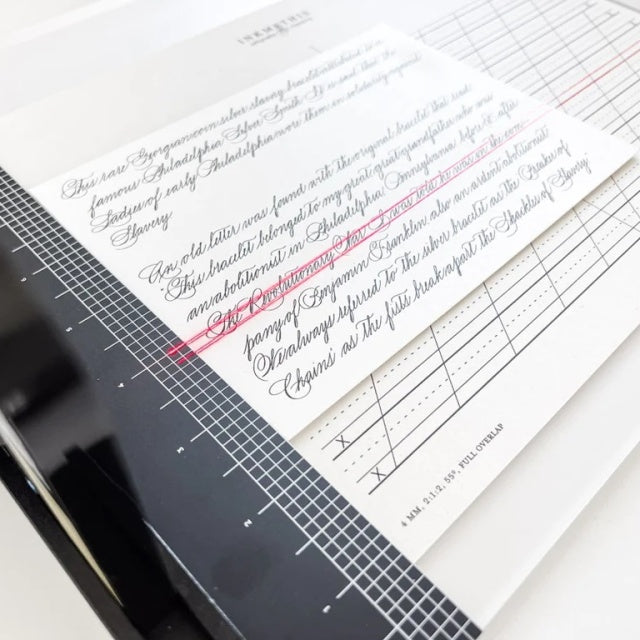 INKMETHIS
This rare Georgian coin silver slavery bracelet
famous Philadelphia Silver Smith. It is said that the
Ladies of early Philadelphia wore them in solidarity against
Slavery
An old letter was found with the original bracelet that read
"This bracelet belonged to my great great grandfather who was
an abolitionist in Philadelphia Pennsylvania before & after
The Revolutionary War. I was told he was in the com-
pany of Benjamin Franklin also an ardent abolitionist
We always referred to the silver bracelet as the Breaker of
Chains' as the fists break apart the Shackles of Slavery."
x
x
4 MM, 2:1:2, 55°, FULL OVERLAP
5
4
3
2
1